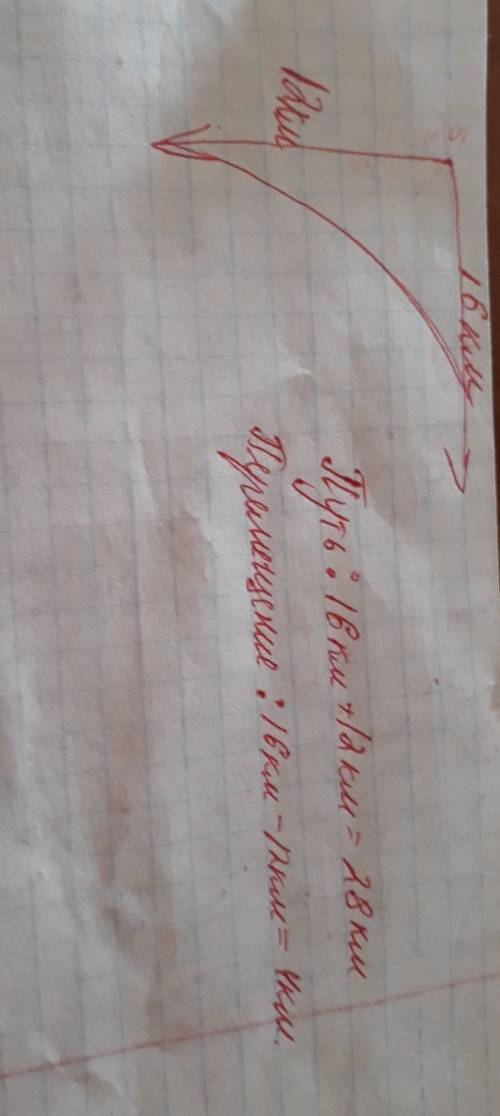 16 км
12км
Путь: 16 км + 12 км = 28 км
Перемещение: 16 км - 12 км = 4 км.